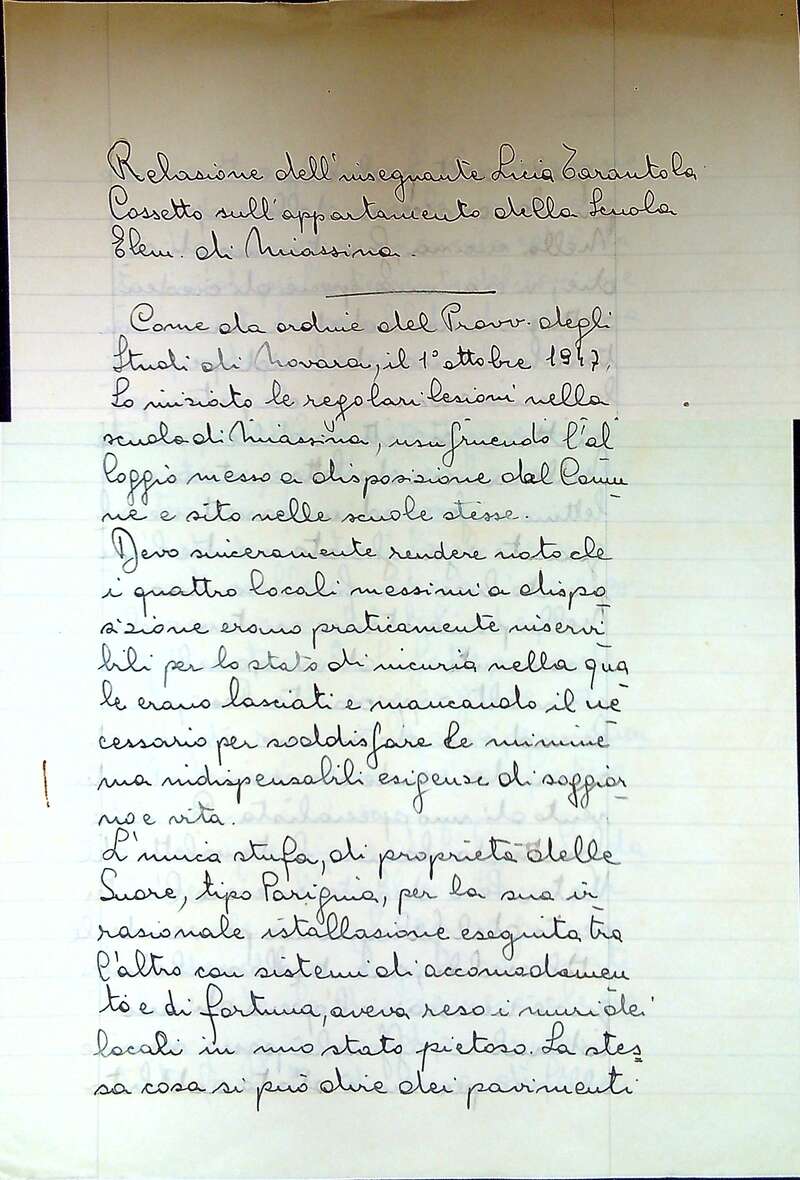 Relazione dell'insegnante Licia Tarantola
Cossetto sull'appartamento della Scuola
Elem. di Miassina.
Come da ordine del Provv. degli
Studi di Novara, il 1° ottobre 1947,
ho iniziato le regolari lezioni nella
scuola di Miassina, usufruendo l'al
loggio messo a disposizione dal Comu
ne e sito nelle scuole stesse.
Devo sinceramente rendere noto che
i quattro locali messimi a dispo
sizione erano praticamente inservi
bili per lo stato di incuria nella qua
le erano lasciati e mancando il ne
cessario per soddisfare le minime
ma indispensabili esigenze di soggior
no e vita.
L'unica stufa, di proprietà delle
Suore, tipo Parigina, per la sua ir
razionale istallazione eseguita tra
l'altro con sistemi di accomodamen
to e di fortuna, aveva reso i muri dei
locali in uno stato pietoso. La stes
sa cosa si può dire dei pavimenti